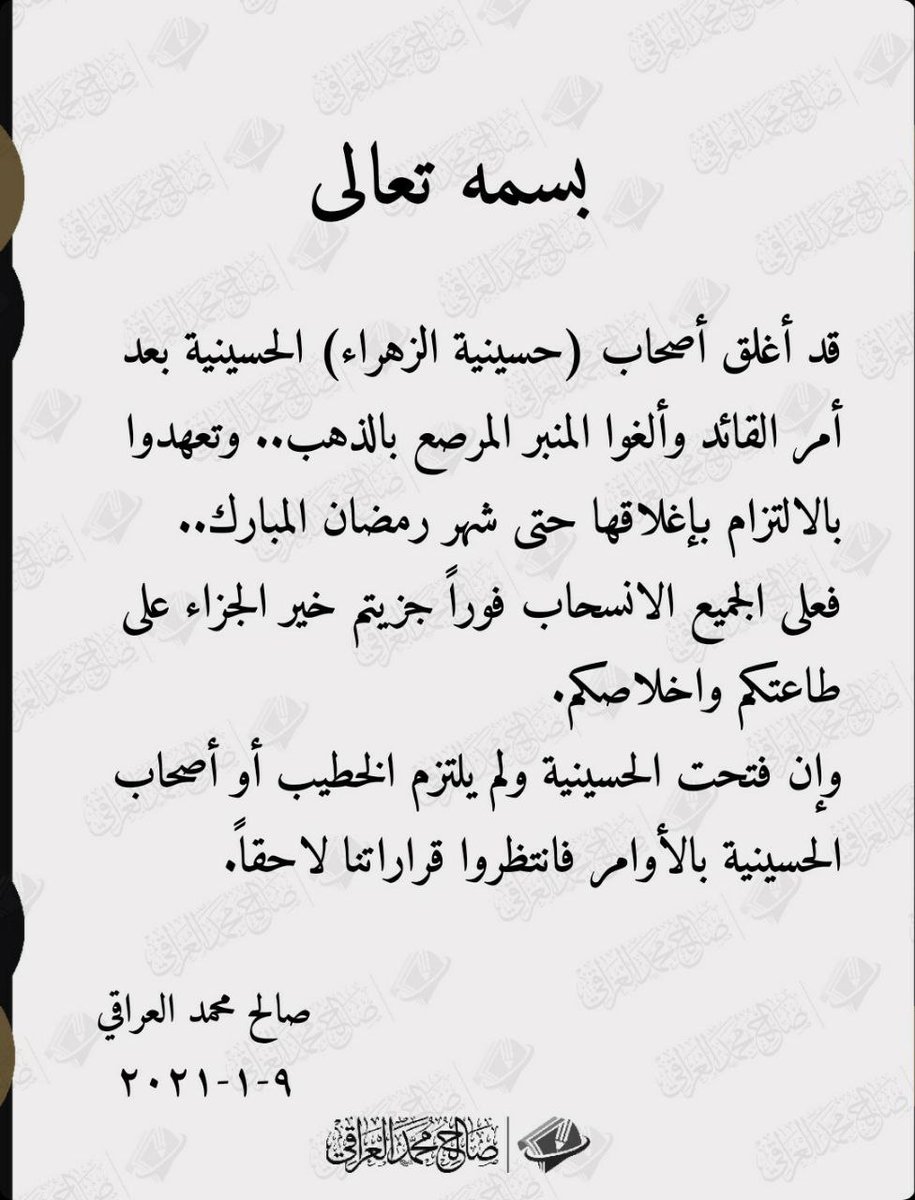 بسمه تعالى
قد أغلق أصحاب (حسينية الزهراء) الحسينية بعد
أمر القائد وألغوا المنبر المرصع بالذهب.. وتعهدوا
بالالتزام بإغلاقها حتى شهر رمضان المبارك..
فعلى الجميع الانسحاب فوراً جزيتم خير الجزاء على
طاعتكم واخلاصكم.
وإن فتحت الحسينية ولم يلتزم الخطيب أو أصحاب
الحسينية بالأوامر فانتظروا قراراتنا لاحقاً.
صالح محمد العراقي
٩-١-٢٠٢١
صالح محمد العراقي